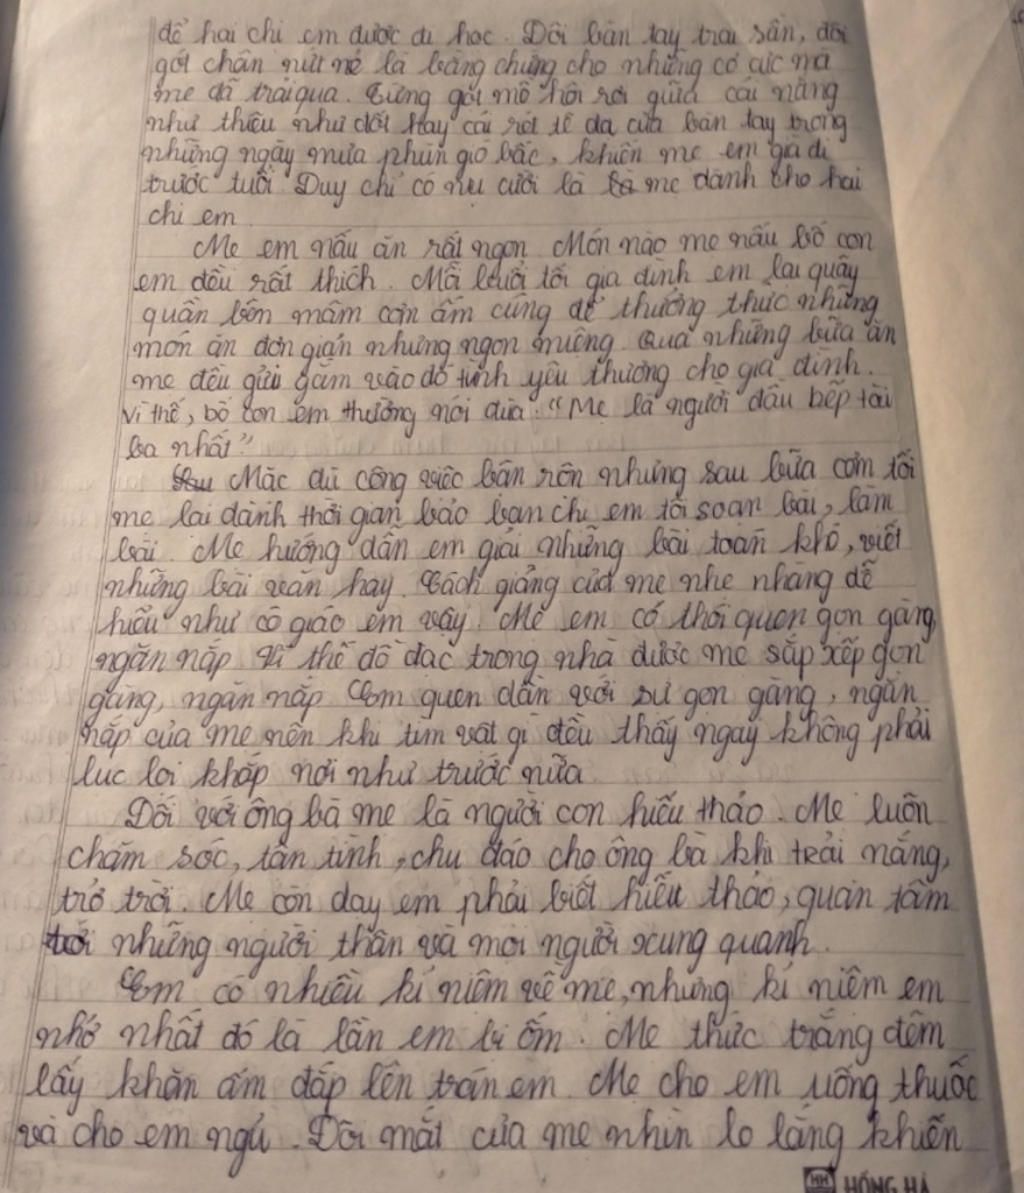 để hai chị em được đi học. Đôi bàn tay trai sần, đôi
gót chân nứt nẻ là bằng chứng cho những cơ cực mà
mẹ đã trải qua. Từng giọt mồ hôi rơi giữa cái nắng
như thiêu như đốt hay cái rét tê da của bàn tay trong
những ngày mưa phùn gió bấc, khiến mẹ em già đi
trước tuổi. Duy chỉ có nụ cười là mẹ dành cho hai
chị em
Mẹ em nấu ăn rất ngon. Món nào mẹ nấu bố con
em đều rất thích. Mỗi buổi tối gia đình em lại quây
quần bên mâm cơm ấm cúng để thưởng thức những
món ăn đơn giản nhưng ngon miệng. Qua những bữa ăn
mẹ đều gửi gắm vào đó tình yêu thương cho gia đình.
Vì thế, bố con em thường nói đùa: "Mẹ là người đầu bếp tài
ba nhất"
Mặc dù công việc bận rộn nhưng sau bữa cơm tối
mẹ lại dành thời gian bảo ban chị em tôi soạn bài, làm
bài. Mẹ hướng dẫn em giải những bài toán khó, viết
những bài văn hay. Cách giảng của mẹ nhẹ nhàng dễ
hiểu như cô giáo em vậy. Mẹ em có thói quen gọn gàng
ngăn nắp. Vì thế đồ đạc trong nhà được mẹ sắp xếp gọn
gàng, ngăn nắp. Em quen dần với sự gọn gàng, ngăn
nắp của mẹ nên khi tìm vật gì đều thấy ngay không phải
lục lọi khắp nơi như trước nữa
Đối với ông bà mẹ là người con hiếu thảo. Mẹ luôn
chăm sóc, tận tình, chu đáo cho ông bà khi trải nắng,
trở trời. Mẹ còn dạy em phải biết hiếu thảo, quan tâm
tới những người thân và mọi người xung quanh.
Em có nhiều kỉ niệm về mẹ, nhưng kỉ niệm em
nhớ nhất đó là lần em bị ốm. Mẹ thức trắng đêm
lấy khăn ấm đắp lên trán em. Mẹ cho em uống thuốc
và cho em ngủ. Đôi mắt của mẹ nhìn lo lắng khiến
HH HỒNG HÀ